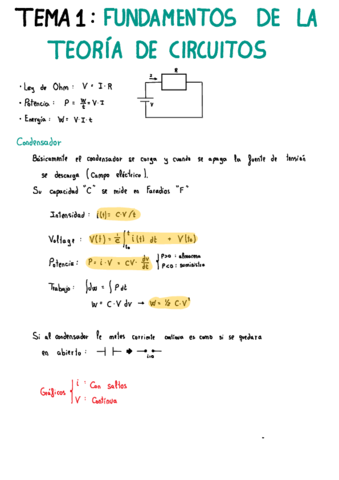 TEMA 1: FUNDAMENTOS DE LA
TEORÍA DE CIRCUITOS
· Ley de Ohm: V = I · R
· Potencia: P = W/t = V·I
· Energía: W = V·I·t
I
R
V
Condensador
Básicamente el condensador se carga y cuando se apaga la fuente de tensión
se descarga (Campo eléctrico).
Su capacidad "C" se mide en Faradios "F"
Intensidad: i(t) = C·V/t
Voltage: V(t) = 1/C ∫ₜ₀ᵗ i(t) dt = V(t₀)
Potencia: P = i·V = CV· dv/dt { P>0: almacena
P<0: suministra
Trabajo: ∫dw = ∫P dt
W = C·V dv → W = ½ C·V²
Si al condensador le metes corriente continua es como si se quedara
en abierto:
i=0
Gráficos { i: Con saltos
V: Continua